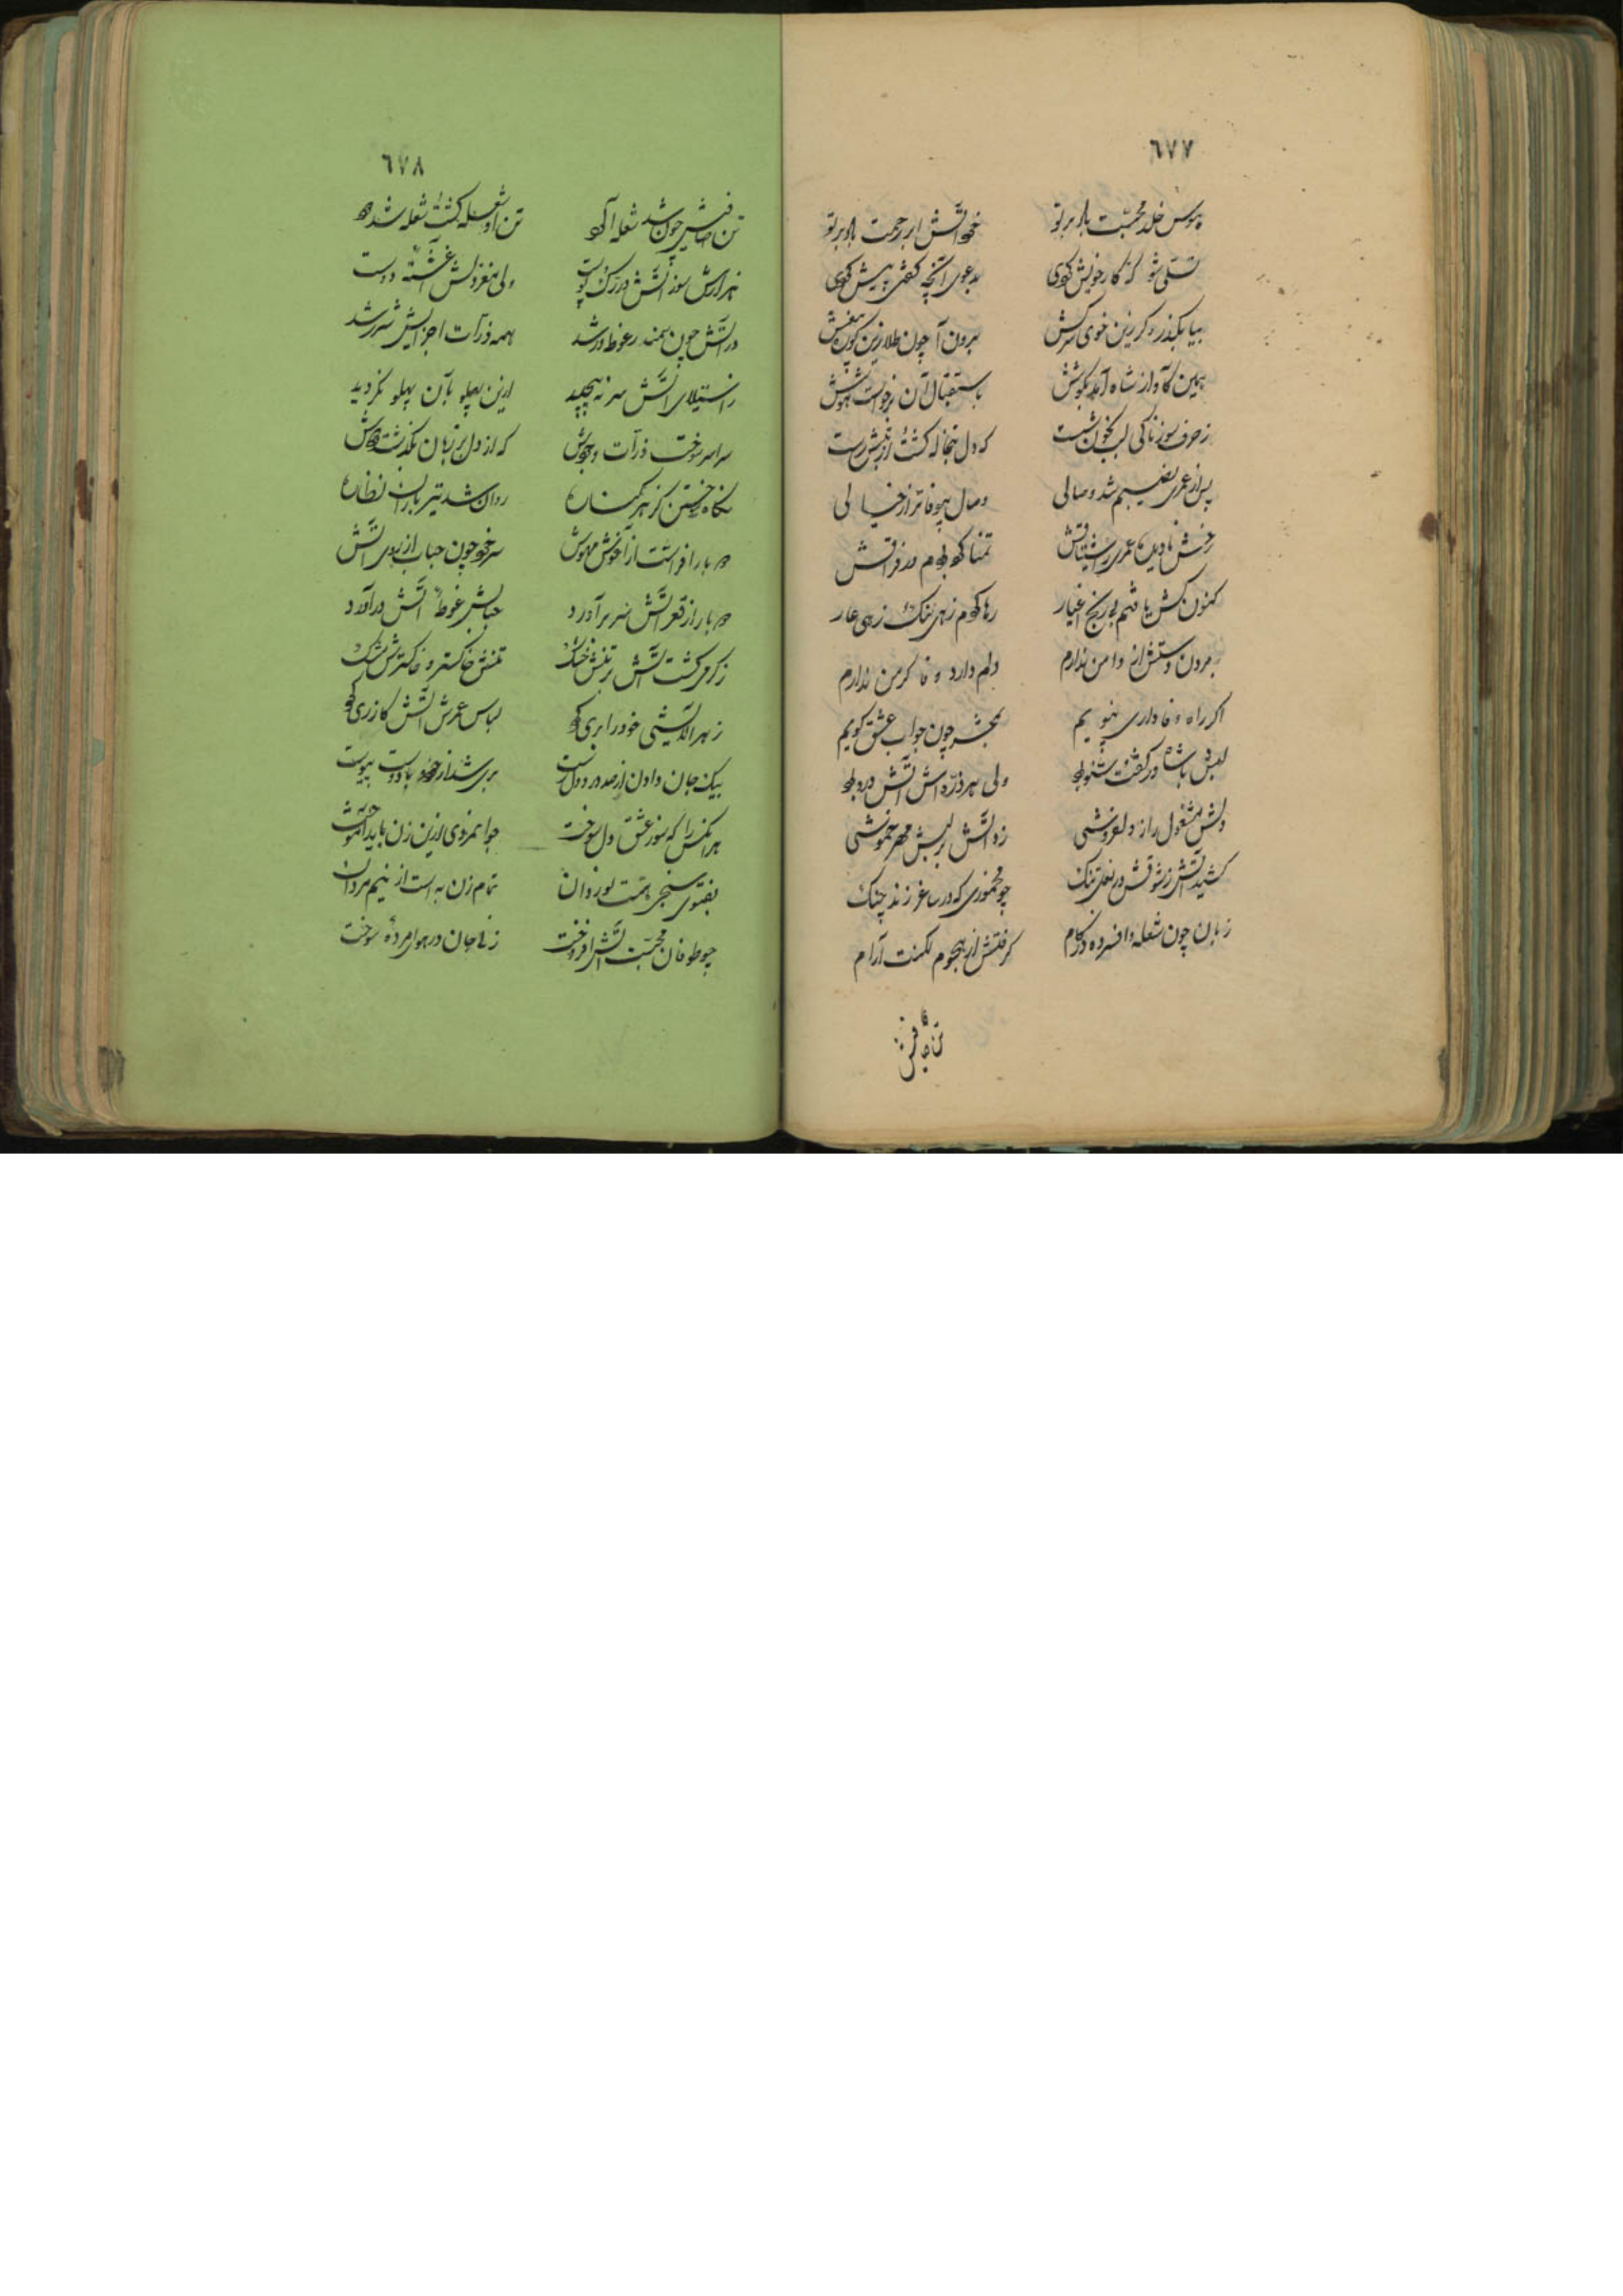 ٦٧٧
هوس خلد محبّت باد بر تو
غم آتش ابر رحمت باد بر تو
تسلی شو که کار خویش کردی
بدعوی آنچه گفتی پیش کردی
بیا بگذر دگر زین خوی سرکش
برون آ چون طلا زین
همین کآواز شاه آمد بگوشش
باستقبال آن هوشش
ز حرف سوزناکی لب بخون شست
که دل تبخاله گشت از لبش رست
پس از عمری نصیبم شد وصالی
وصال بیوفاتر از خیالی
رخش نادیده عمری ز اشتیاقش
تمنا کرده بودم در فراقش
کنون کش یافتم بی رنج اغیار
رها کردم زهی ننگ و زهی عار
برون دستش از دامن ندارم
دلم دارد وفا گر من ندارم
اگر راه وفاداری نپویم
بمحشر چون جواب عشق گویم
لبش با شاه در گفت و شنو بود
ولی هر ذرّه‌اش آتش درو بود
دلش مشغول راز و لعل خموشی
زد آتش بر لبش مهر خموشی
کشید آتش ز شوقش در بغل تنگ
چو مخموری که در ساغر زند چنگ
زبان چون شعله وا فسرده در کام
گرفتش از هجوم لکنت آرام
تن صافیش
٦٧٨
تن صافیش چون شد شعله آلود
تن او شعله گشت و شعله شد دود
هزارش سوز آتش در رگ و پوست
ولی مغز دلش آغشتهٔ دوست
در آتش چون سمندر غوطه‌ور شد
همه ذرّات اجزایش شرر شد
ز استیلای آتش سر نپیچید
ازین پهلو بآن پهلو نگردید
سراسر سوخت ذرّات وجودش
که از دل بر زبان نگذشت دودش
نگاه جستن کز هر کناره
روان شد تیر باران نظاره
دم بار افراشت از آغوش مهوش
سر خود چون حباب از روی آتش
دم بار از قعر آتش سر برآورد
حبابش غوطهٔ آتش درآورد
ز گرمی گشت آتش بر تنش خشک
تنش خاکستر و خاکسترش مشک
ز هر آلایشی خود را بری کرد
لباس عرش آتش گازری کرد
بیک جان دادن از صد درد دل رست
بری شد از خود و با دوست پیوست
هر آنکس را که سوز عشق دل سوخت
جوانمردی ازین زن باید آموخت
بفتوی سنجی همّت نوردان
تمام زن به است از نیم مردان
چو طوفان محبّت آتش افروخت
زنی جان در هوای مردهٔ سوخت